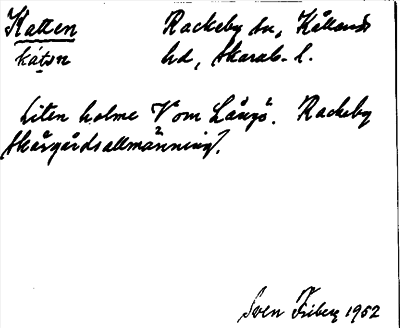 Katten Rackeby sn, Kållands
kátən hd, Skarab. l.
Liten holme V om Långö. Rackeby
skärgårdsallmänning.
Sven Friberg 1952